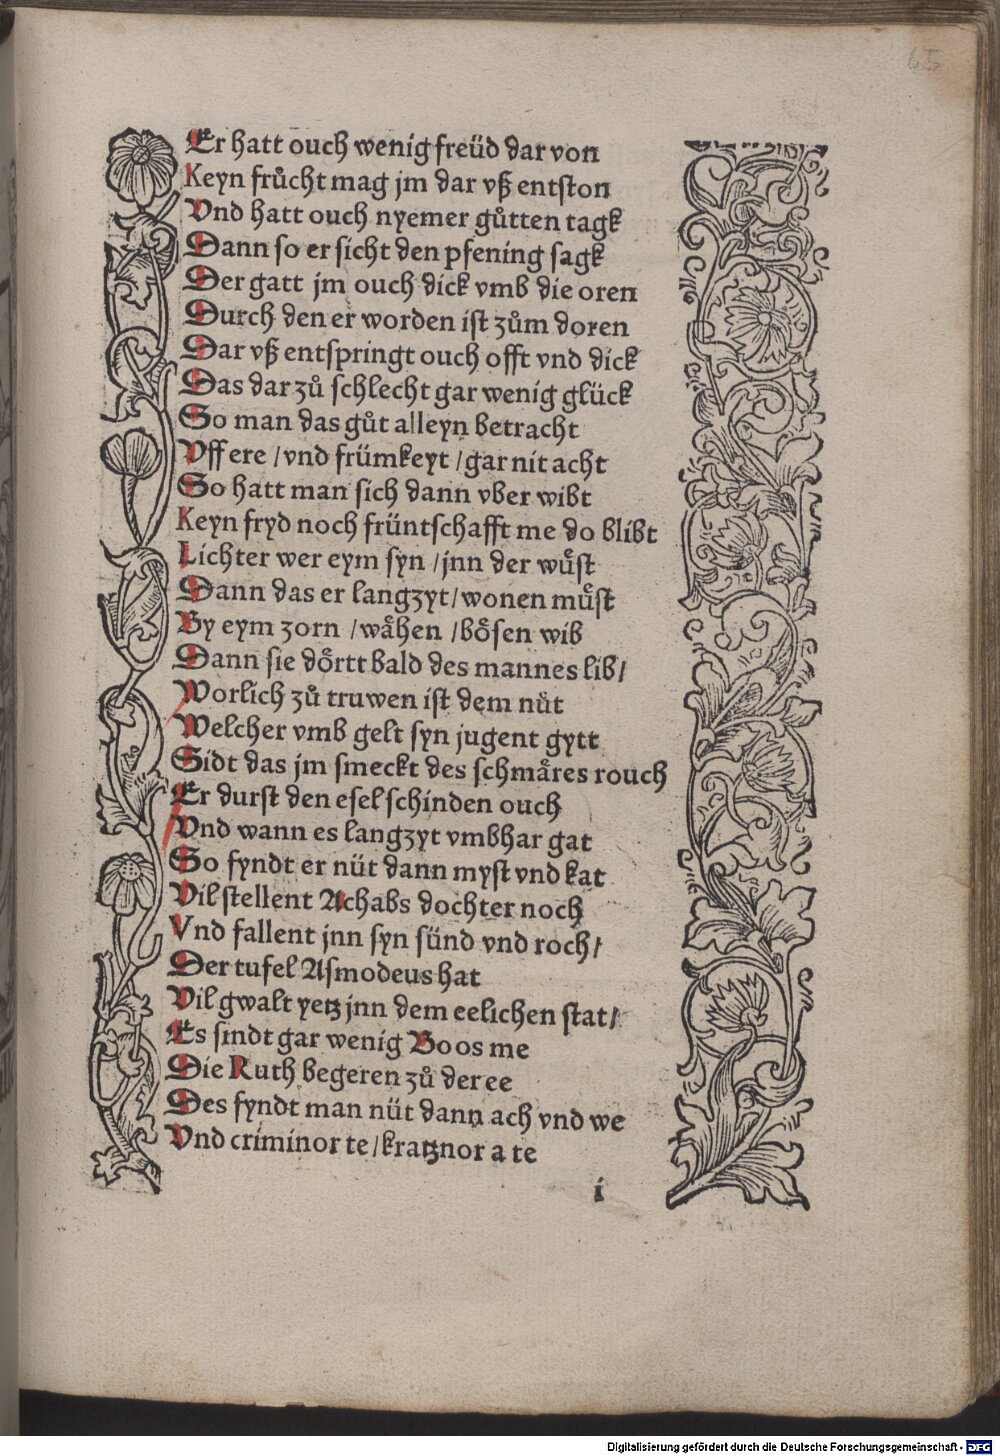 65
Er hatt ouch wenig freüd dar von
Keyn frůcht mag jm dar vß entston
Vnd hatt ouch nyemer gůtten tagk
Dann so er sicht den pfening sagk
Der gatt jm ouch dick vmb die oren
Durch den er worden ist zům doren
Dar vß entspringt ouch offt vnd dick
Das dar zů schlecht gar wenig glück
So man das gůt alleyn betracht
Vff ere / vnd frümkeyt / gar nit acht
So hatt man sich dann vber wibt
Keyn fryd noch früntschafft me do blibt
Lichter wer eym syn / jnn der wuͤst
Dann das er langzyt / wonen muͤst
By eym zorn / waͤhen / boͤsen wib
Dann sie doͤrtt bald des mannes lib /
Worlich zů truwen ist dem nüt
Welcher vmb gelt syn jugent gytt
Sidt das jm smeckt des schmaͤres rouch
Er durst den esel schinden ouch
Vnd wann es langzyt vmbhar gat
So fyndt er nüt dann myst vnd kat
Vil stellent Achabs dochter noch
Vnd fallent jnn syn sünd vnd roch /
Der tufel Asmodeus hat
Vil gwalt yetz jnn dem eelichen stat /
Es sindt gar wenig Boos me
Die Ruth begeren zů der ee
Des fyndt man nüt dann ach vnd we
Vnd criminor te / kratznor a te
i
Digitalisierung gefördert durch die Deutsche Forschungsgemeinschaft - DFG